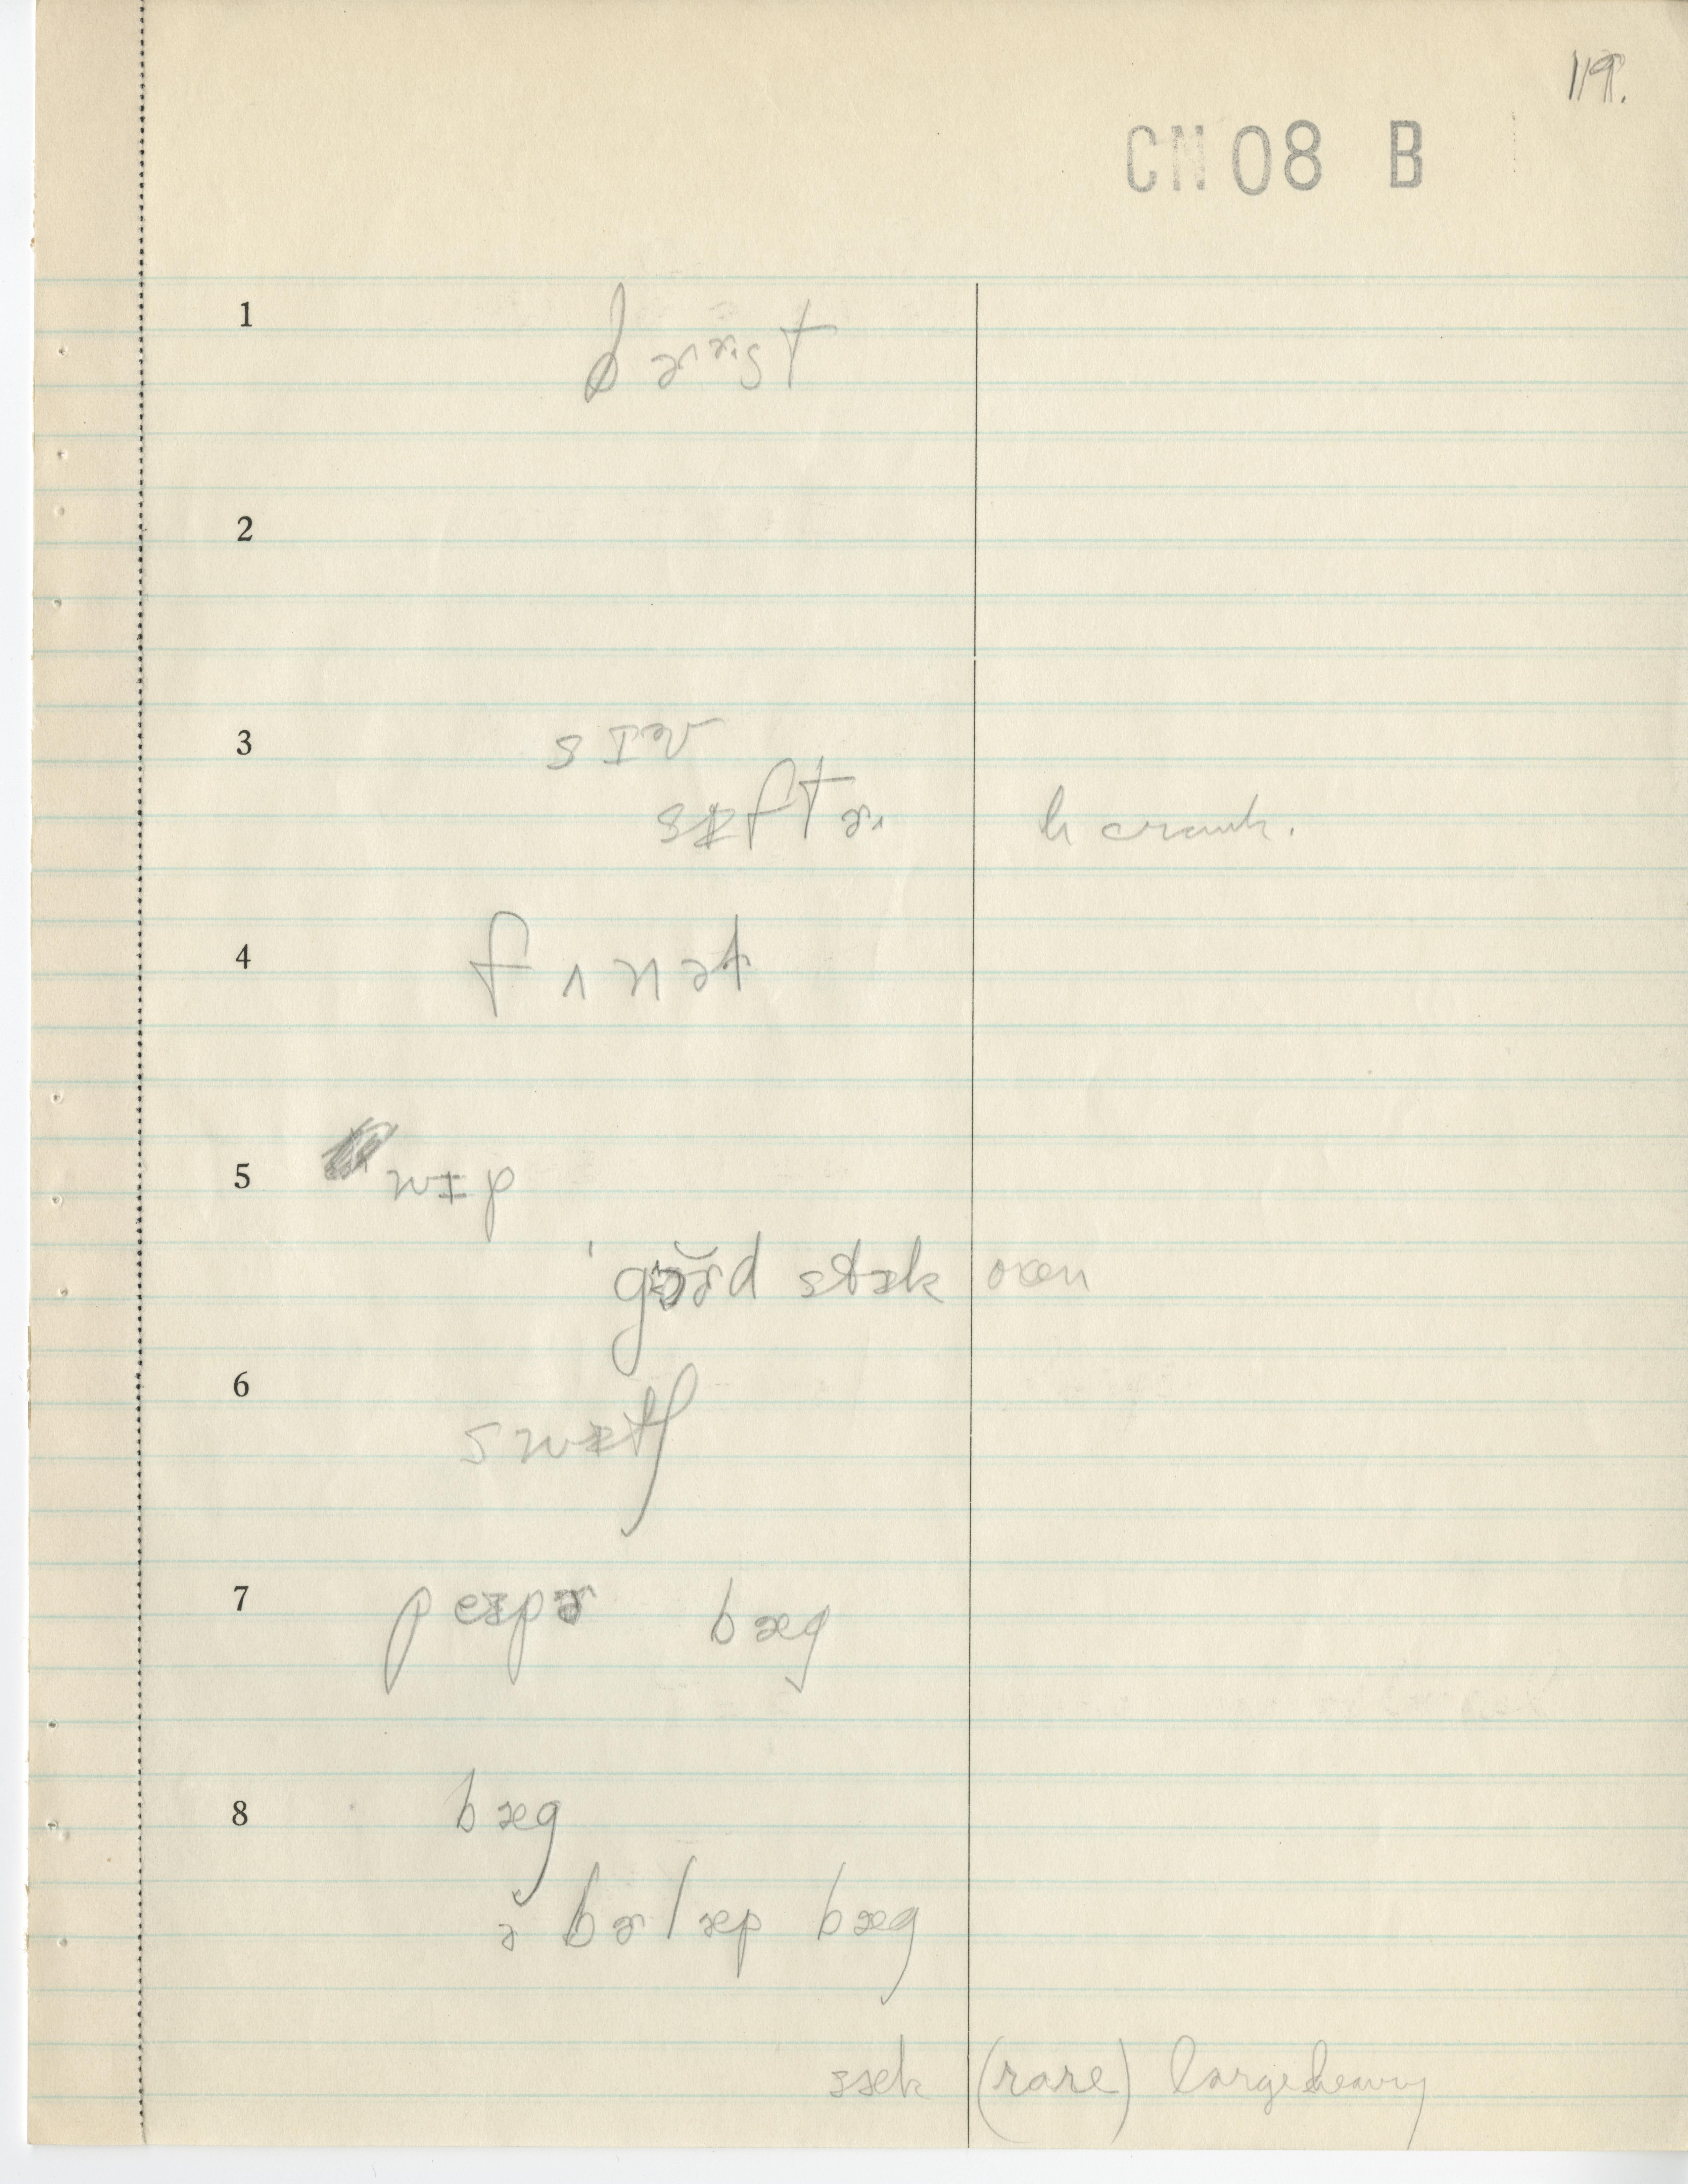 119.
CN 08 B
1
2
3 sɪəv
sɪftɚ h crank.
4 fʌnəɫ
5 wɪp
stɪk oxen
6 swɪtʃ
7 peɪpɚ bæg
8 bæg
ə bɚlæp bæg
sæk (rare) large heavy